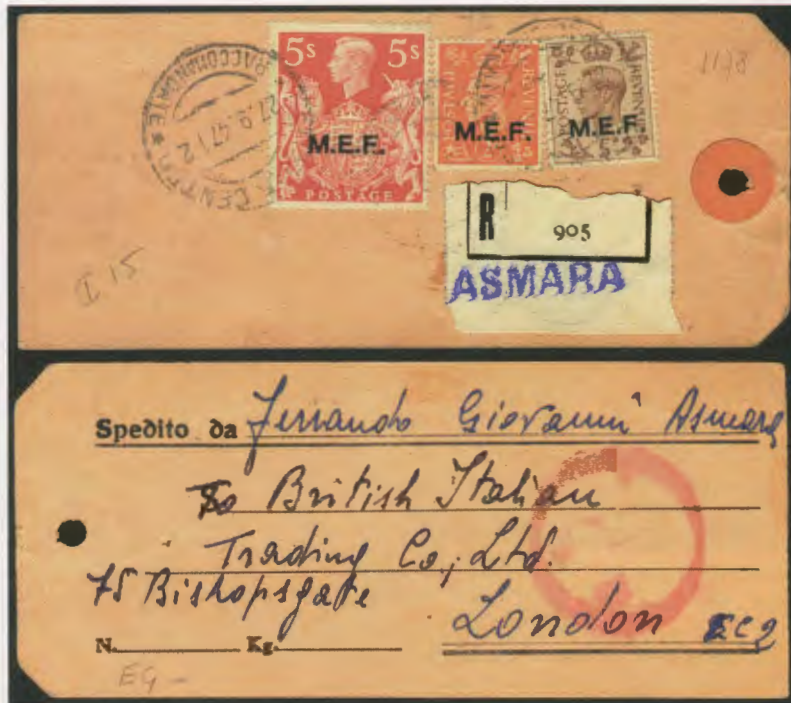 5s 5s
M.E.F.
POSTAGE
M.E.F.
POSTAGE REVENUE
M.E.F.
1178
RACCOMANDATE
27.9.47 12
CENTRO
R 905
ASMARA
15
Spedito da Ferrando Giovanni Asmara
To British Italian
Trading Co; Ltd.
75 Bishopsgate
London EC2
N. Kg.
EG -